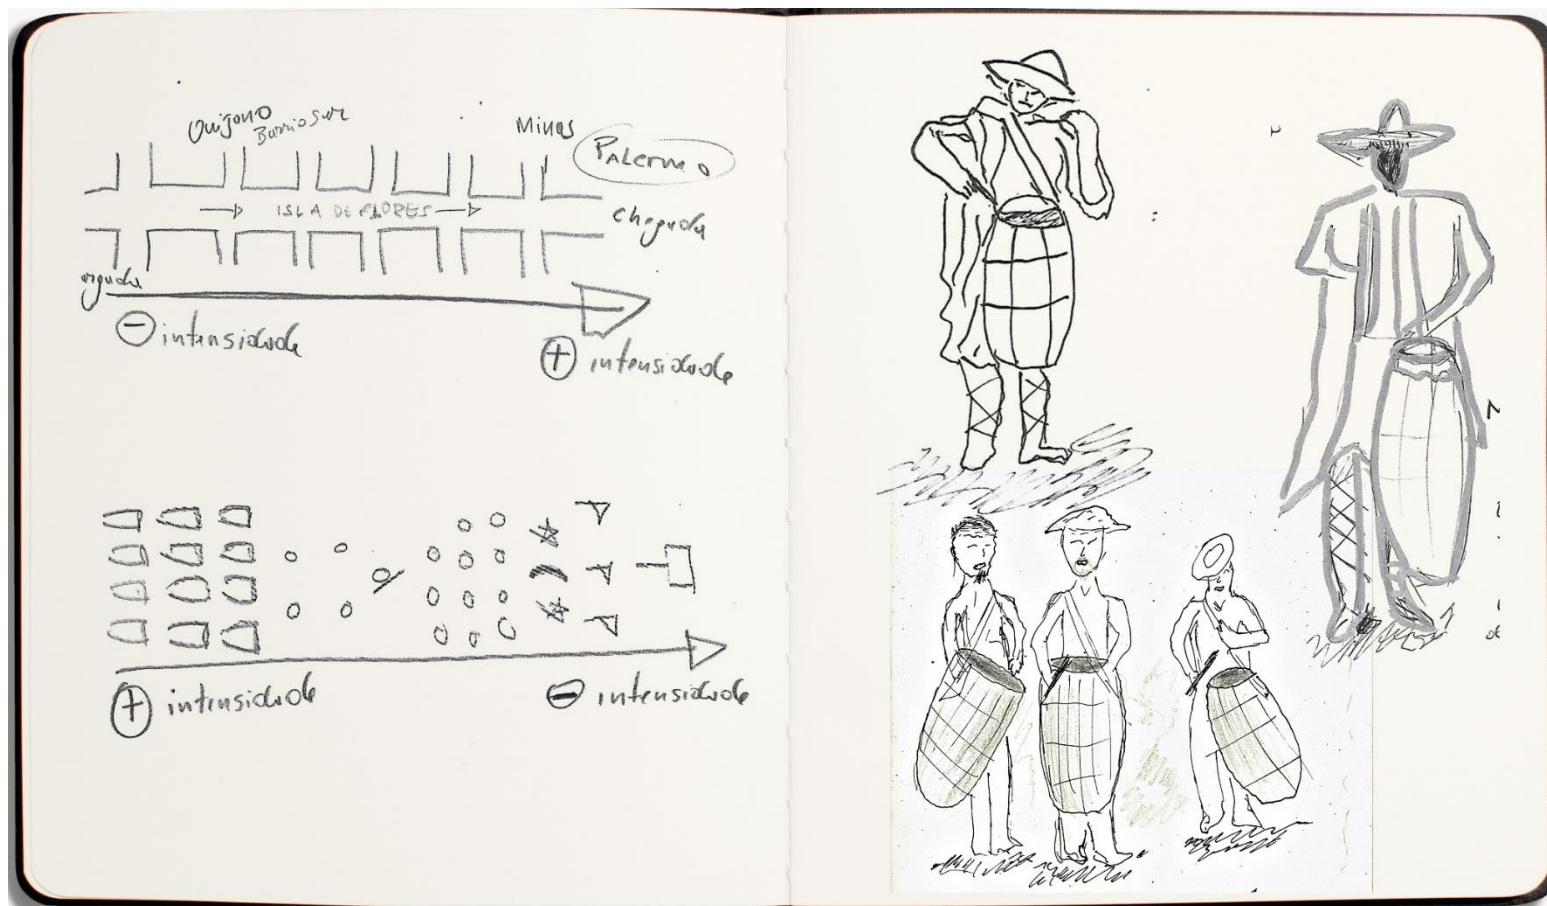 Quijano
Barrio Sur
Minas
PALermo
ISLA DE FLORES
chegada
- intensidade
+ intensidade
+ intensidade
- intensidade